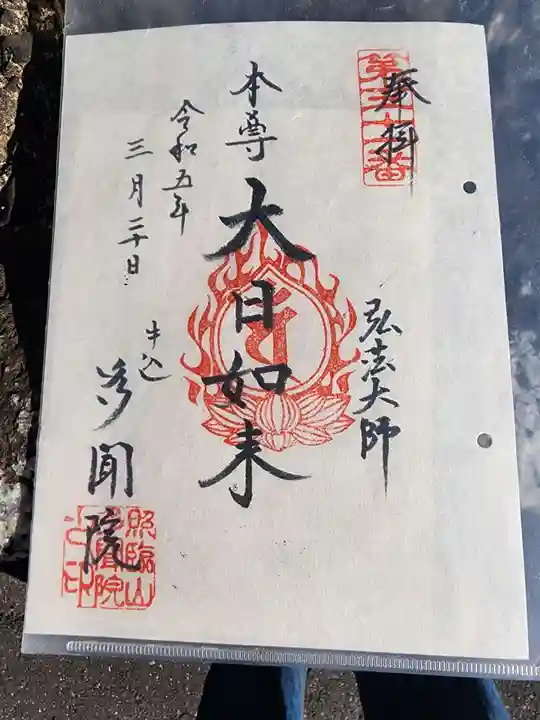 奉拝
弘法大師
本尊
大日如来
令和五年
三月三十日
牛込
多聞院
照臨山
多聞院
之印